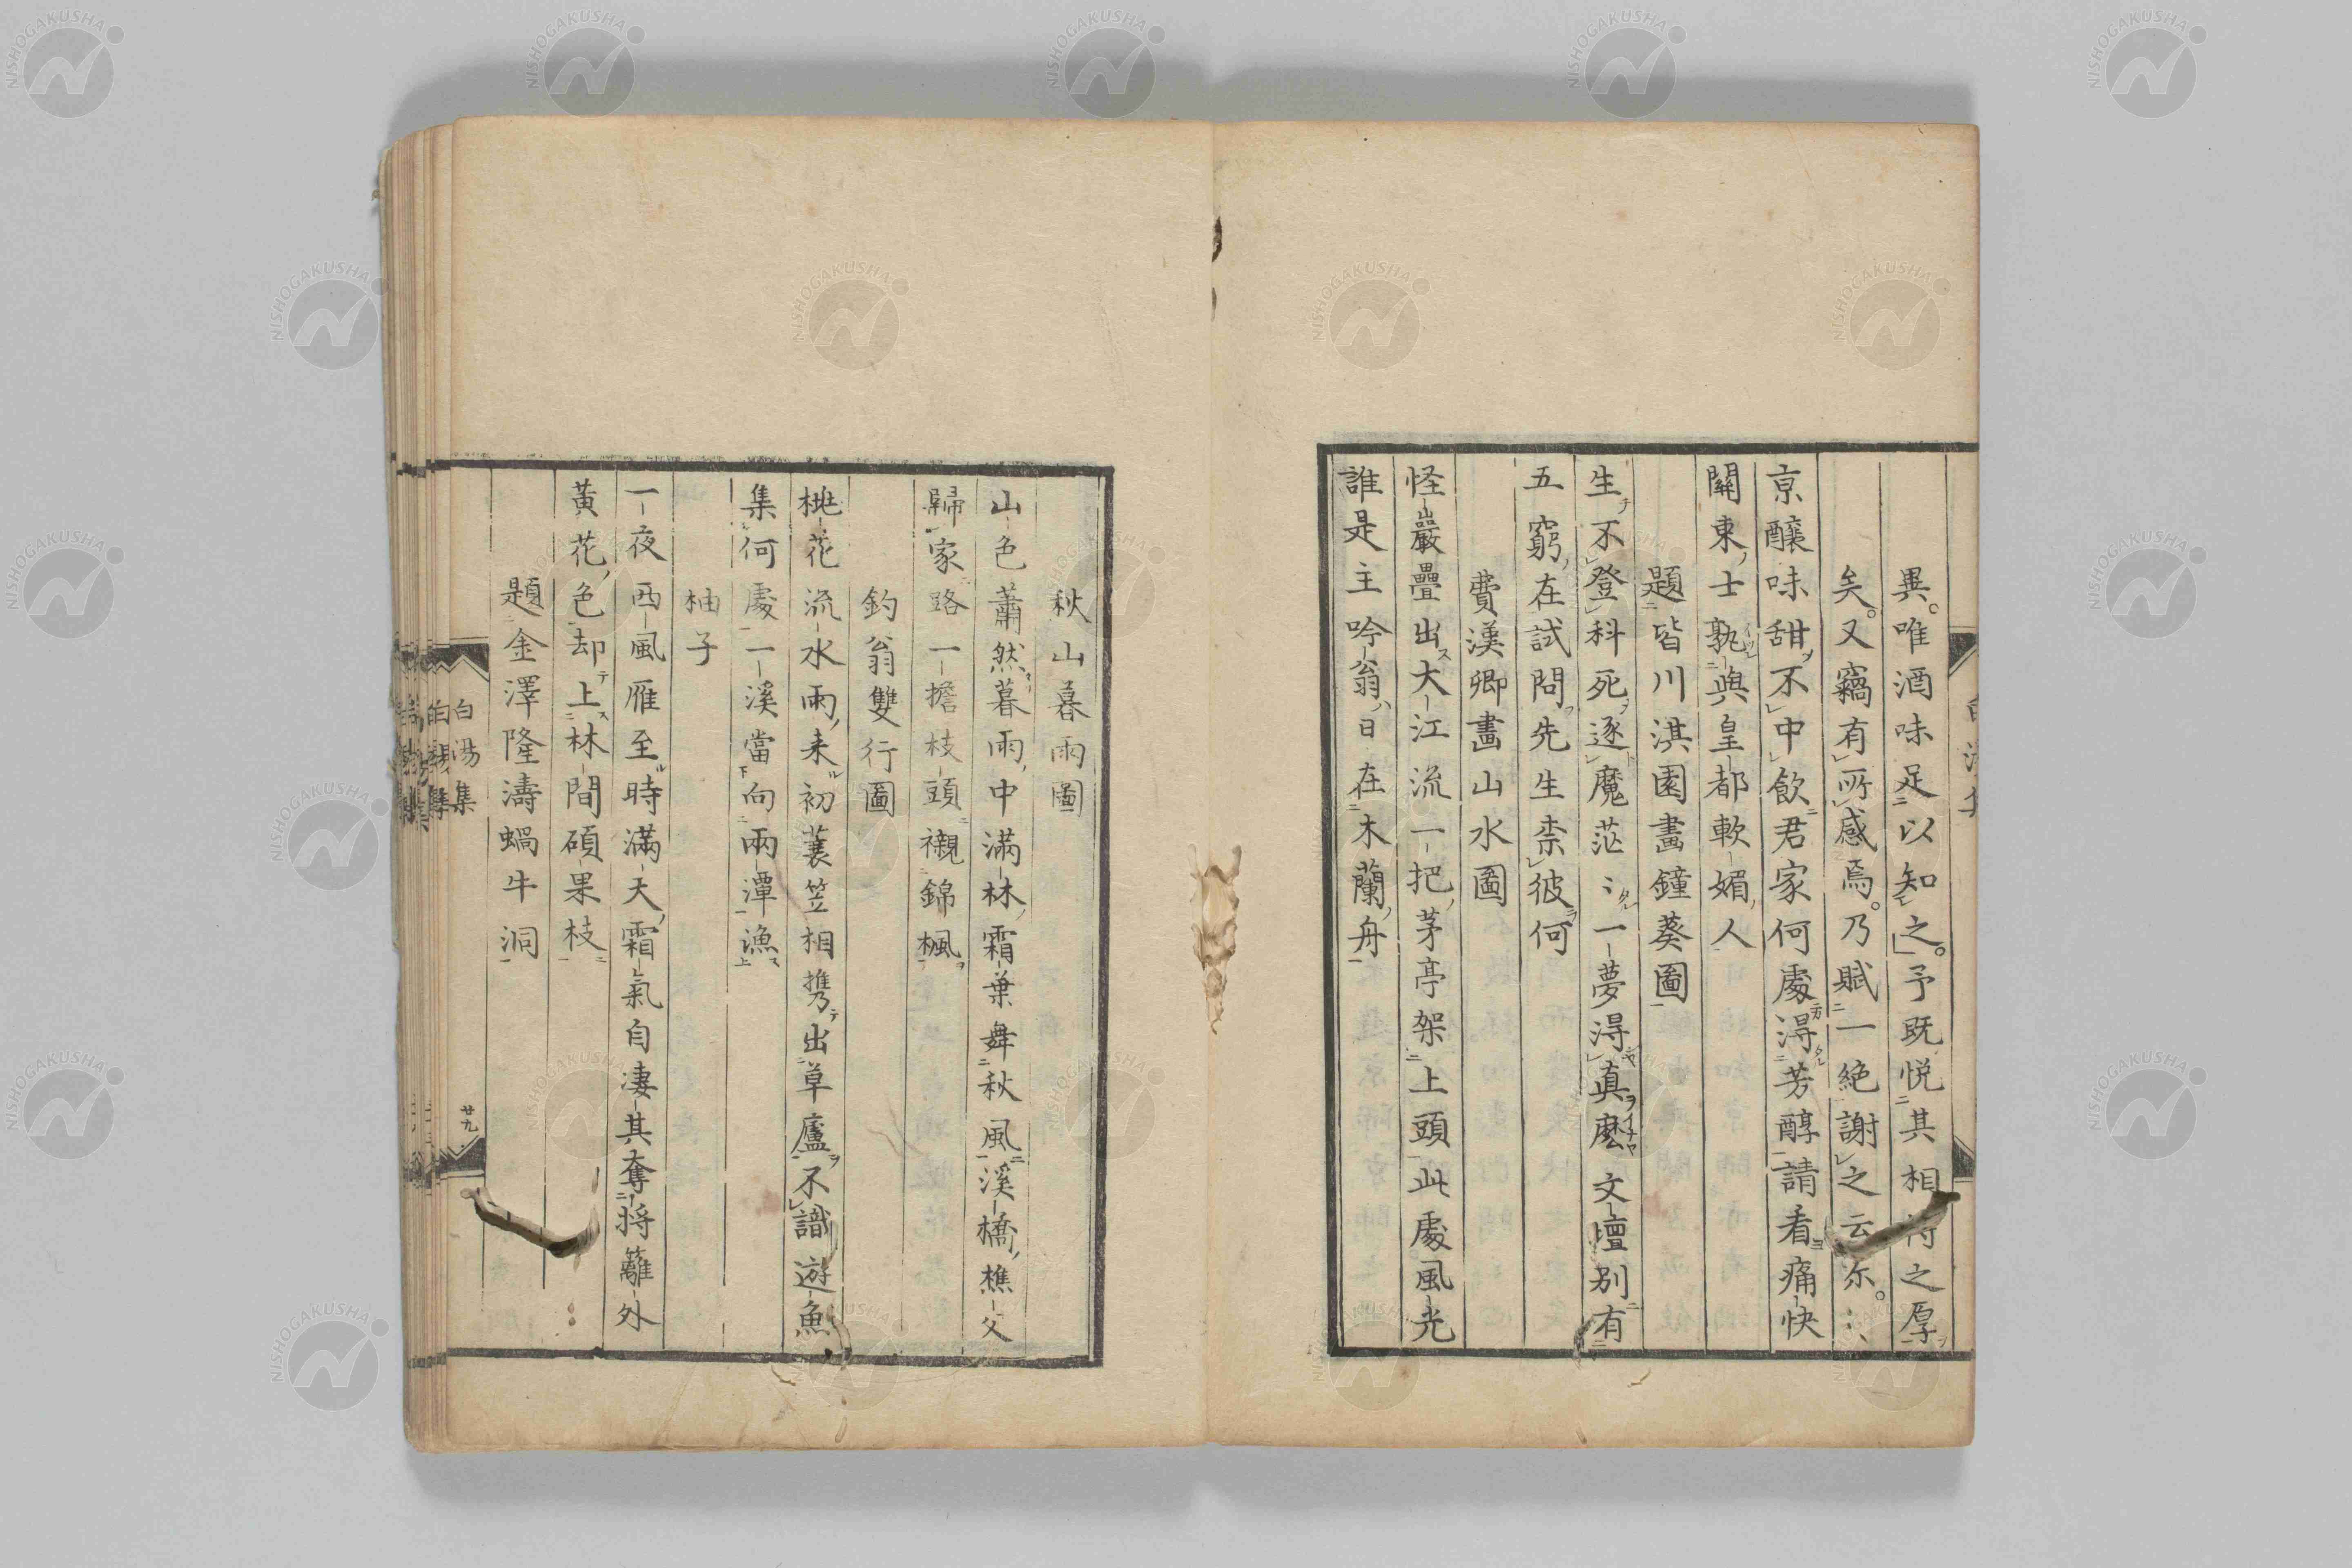 異。唯酒味足以知之。予既悦其相待之厚
矣。又竊有所感焉。乃賦一絶謝之云尓。
京釀味甜不中飲君家何處得芳醇請看痛快
關東士孰與皇都軟媚人
題皆川淇園畫鐘葵圖
生不登科死逐魔茫〻一夢得真麽文壇別有
五窮在試問先生柰彼何
費漢卿畫山水圖
怪巖疊出大江流一把茅亭架上頭此處風光
誰是主吟翁日在木蘭舟
秋山暮雨圖
山色蕭然暮雨中滿林霜葉舞秋風溪橋樵父
歸家路一擔枝頭襯錦楓
釣翁雙行圖
桃花流水雨来初蓑笠相携出草廬不識遊魚
集何處一溪當向兩潭漁
柚子
一夜西風雁至時滿天霜氣自凄其奪将籬外
黃花色却上林間碩果枝
題金澤隆濤蝸牛洞
白湯集
廿九